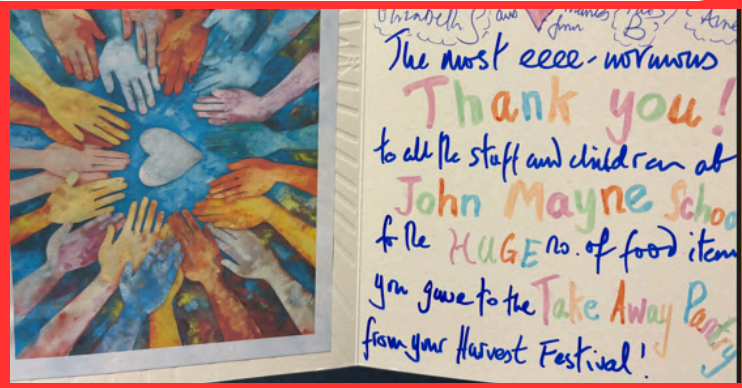 Elizabeth S. and
B.
The most eeee-normous
Thank you!
to all the staff and children at
John Mayne Schoo
for the HUGE no. of food item
you gave to the Take Away Pantry
from your Harvest Festival!